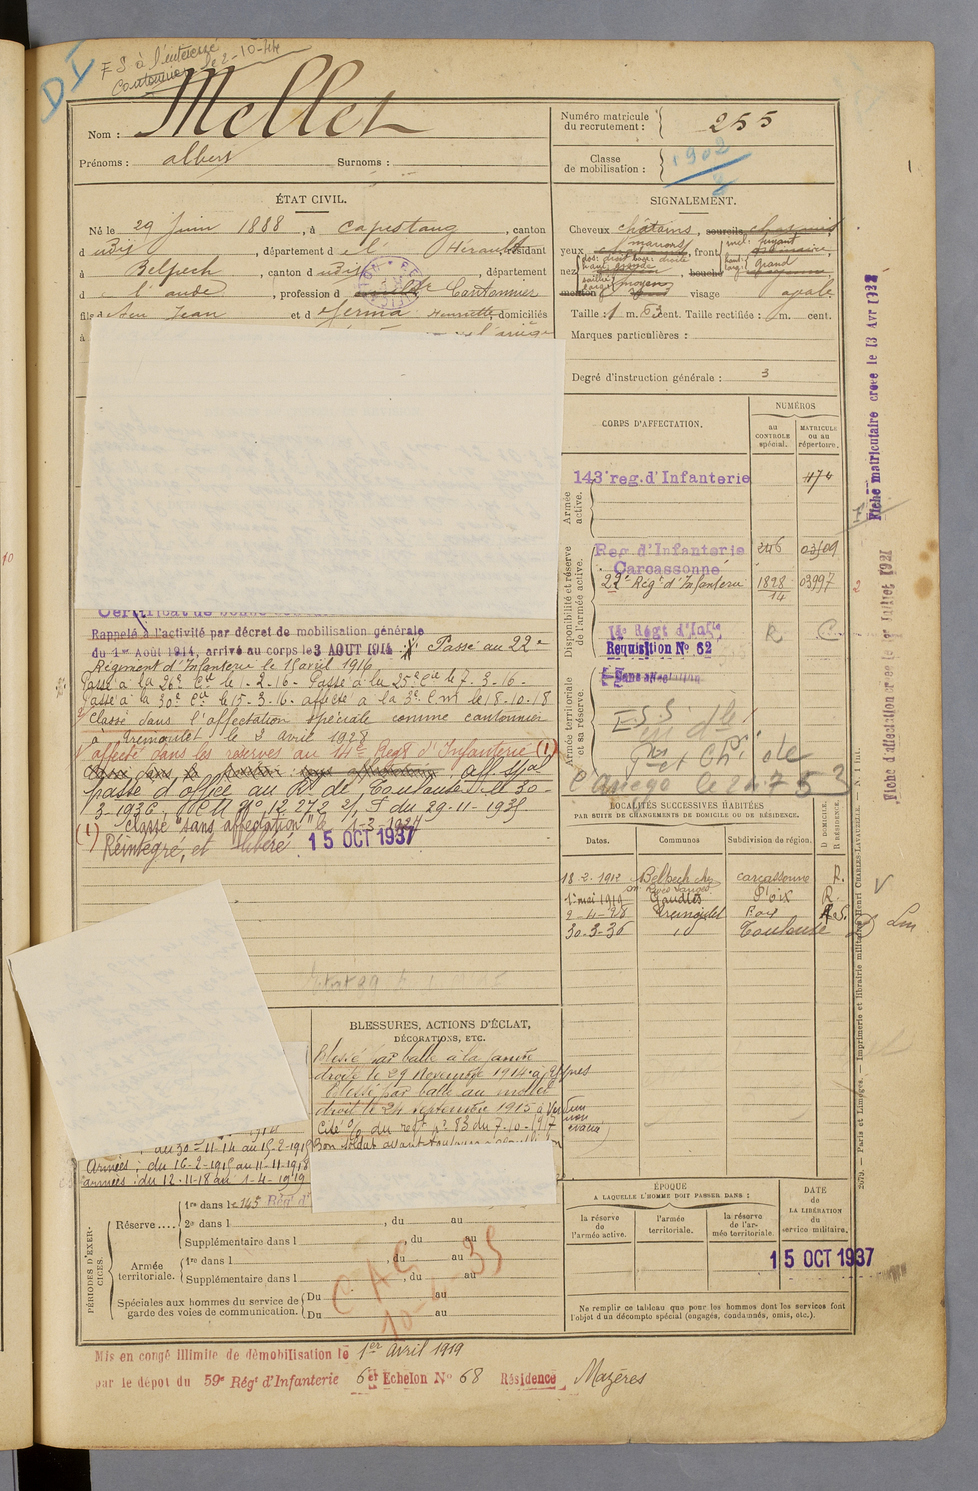 DI
F S à l'intéressé
Cantonnier le 2-10-44
Nom : Mellet
Prénoms : albert Surnoms :
Numéro matricule du recrutement : 255
Classe de mobilisation : 1902
ÉTAT CIVIL.
Né le 29 Juin 1888, à Capestang, canton
d udit, département d e l' Hérault, résidant
à Belpech, canton d udit, département
d e l'aude, profession d Cantonnier
fils d feu Jean et d Henriette, domiciliés
à
SIGNALEMENT.
Cheveux châtains, sourcils
yeux marrons, front incl: fuyant
nez dos: droit base: droite haut: grand
bouche
menton visage ovale
Taille : 1 m. 63 cent. Taille rectifiée : m. cent.
Marques particulières :
Degré d'instruction générale : 3
CORPS D'AFFECTATION.
NUMÉROS
au CONTROLE spécial.
MATRICULE ou au répertoire.
Armée active.
143e reg. d'Infanterie 474
Disponibilité et réserve de l'armée active.
Reg d'Infanterie 246 03109
Carcassonne
22e Régt d'Infanterie 1828/14 03997
14e Régt d'Infie R C
Requisition No 62
Armée territoriale et sa réserve.
Sans affectation
l'ariège le 24.7.53
Rappelé à l'activité par décret de mobilisation générale
du 1er Août 1914, arrivé au corps le 3 AOUT 1914 Passé au 22e
Régiment d'Infanterie le 1 avril 1916
Passé à la 26e Cie le 1-2-16 - Passé à la 25e Cie le 7-3-16 -
Passé à la 30e Cie le 15-3-16 - affecté à la 3e C.M. le 18-10-18
Classé dans l'affectation spéciale comme cantonnier
à Tremoulet le 2 avril 1928
affecté dans les réserves au 14e Regt d'Infanterie (1)
passé d'office au Rt de Toulouse le 30-
3-1936. No 12 272 du 29-11-1935
(1) Classé "sans affectation" le 1-2-1924
Réintégré, et libéré 15 OCT 1937
LOCALITÉS SUCCESSIVES HABITÉES
PAR SUITE DE CHANGEMENTS DE DOMICILE OU DE RÉSIDENCE.
Dates. Communes Subdivision de région. D DOMICILE. R RÉSIDENCE.
18-2-1912 Belpech carcassonne R.
1er mai 1919 Gaudiès Foix R.
2-4-28 Tremoulet Foix R.
30-3-36 id Toulouse
BLESSURES, ACTIONS D'ÉCLAT,
DÉCORATIONS, ETC.
Blessé par balle à la jambe
droite le 29 Novembre 1914 à Ypres
blessé par balle au mollet
droit le 24 septembre 1915 à Verdun
non évacué
Cité O/ du regt no 83 du 7-10-1917
Bon soldat
au 30-11-14 au 15-2-1915
Armées : du 16-2-1915 au 11-11-1918
armées : du 12-11-18 au 1-4-1919
PÉRIODES D'EXERCICES.
Réserve .... 1re dans le 143 Régt d'
2e dans l , du au
Supplémentaire dans l , du au
Armée territoriale. 1re dans l , du au
Supplémentaire dans l , du au
Spéciales aux hommes du service de garde des voies de communication. Du au
Du au
ÉPOQUE
A LAQUELLE L'HOMME DOIT PASSER DANS :
la réserve de l'armée active.
l'armée territoriale.
la réserve de l'armée territoriale.
DATE de LA LIBÉRATION du service militaire.
15 OCT 1937
Ne remplir ce tableau que pour les hommes dont les services font
l'objet d'un décompte spécial (engagés, condamnés, omis, etc.).
Mis en congé illimité de démobilisation le 1er avril 1919
par le dépôt du 59e Régt d'Infanterie 6e Echelon No 68 Résidence Mazères
Fiche matriculaire créée le 13 Avr 1922
Fiche d'affectation créée le 1er juillet 1921
2079. — Paris et Limoges. — Imprimerie et librairie militaires Henri CHARLES-LAVAUZELLE.